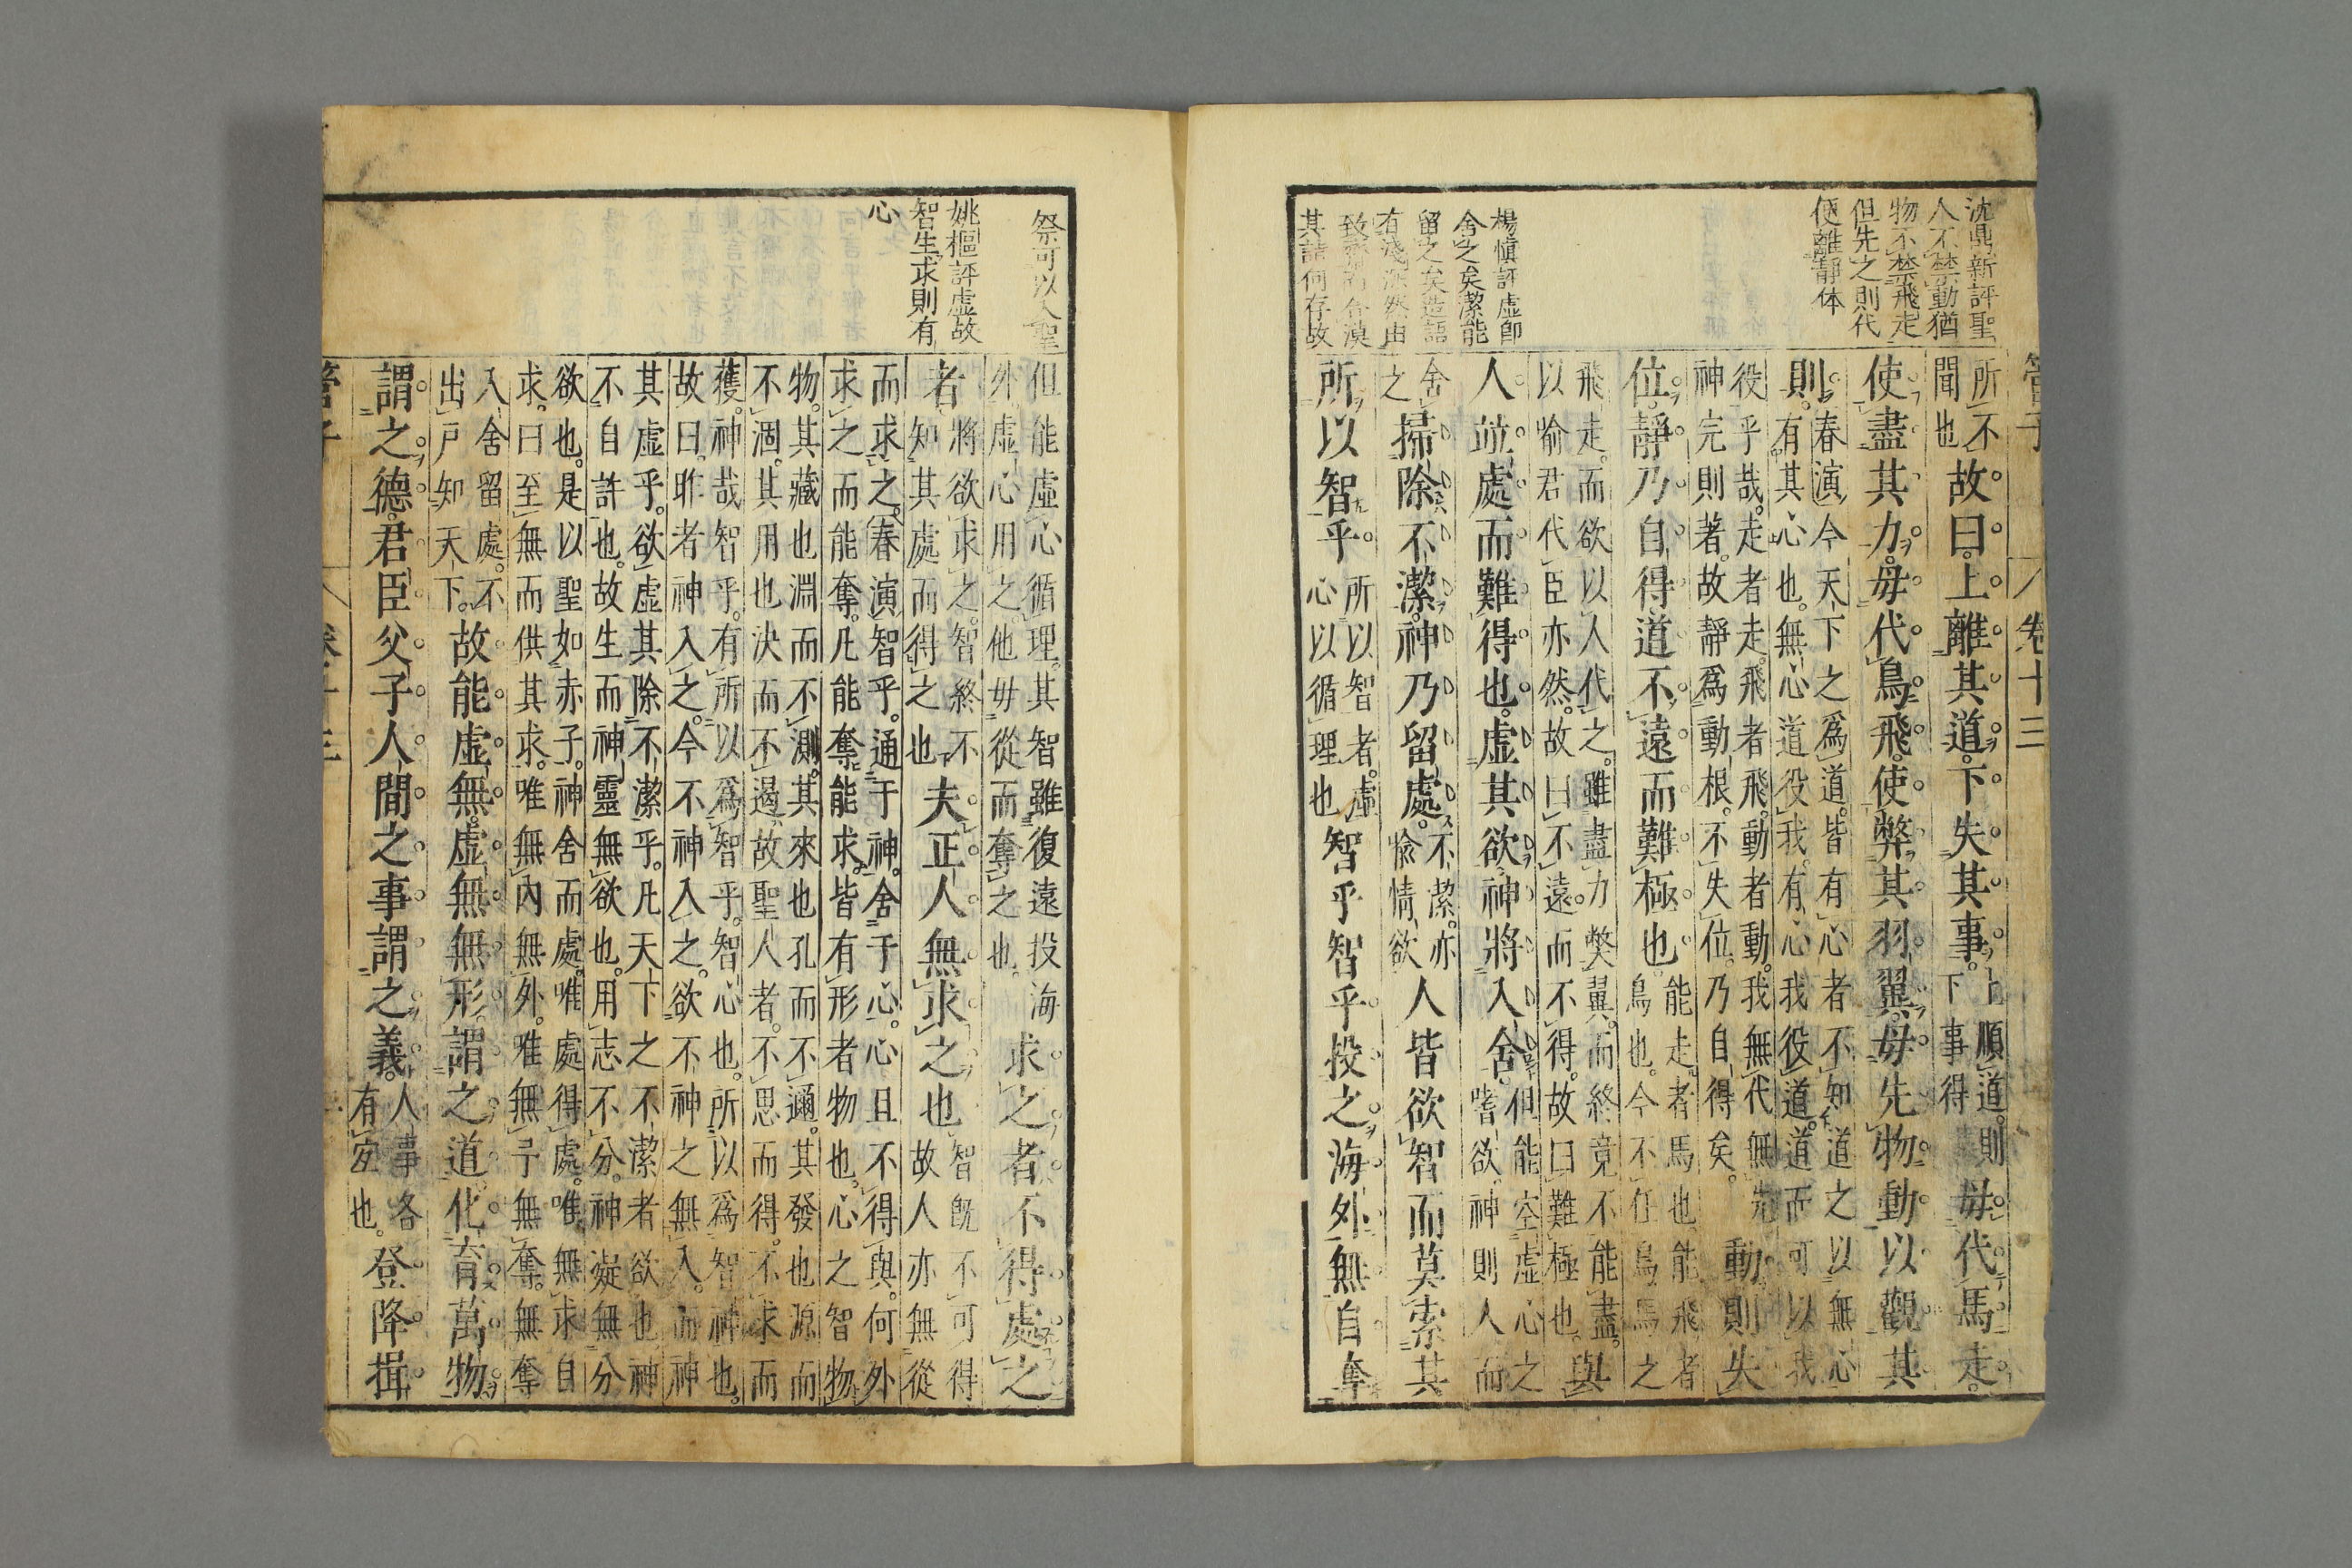 沈鼎新評聖
人不禁動猶
物不禁飛走
但先之則代
便離靜体
楊慎評虛卽
舍之矣潔能
留之矣造語
有淺深然由
合漠
其詰何存故
管子 卷十三
所不
聞也
故曰上離其道下失其事
上順道則
下事得
毋代馬走
使盡其力毋代鳥飛使弊其羽翼毋先物動以觀其
則
春演今天下之爲道皆有心者不知道之以無心
有其心也無心道役我有心我役道道而可以我
役乎哉走者走飛者飛動者動我無代無先
神完則著故靜爲動根不失位乃自得矣
動則失
位靜乃自得道不遠而難極也
能走者馬也能飛者
鳥也今不任鳥馬之
飛走而欲以人代之雖盡力獘翼而終竟不能盡
以喻君代臣亦然故曰不遠而不得故曰難極也
與
人竝處而難得也虛其欲神將入舍
但能空虛心之
嗜欲神則人而
舍
之
掃除不潔神乃留處
不潔亦
愉情欲
人皆欲智而莫索其
所以智乎
所以智者虛
心以循理也
智乎智乎投之海外無自奪
祭可以入聖
姚樞評虛故
智生求則有
心
但能虛心循理其智雖復遠投海
外虛心用之他毋從而奪之也
求之者不得處之
者
將欲求之智終不
知其處而得之也
夫正人無求之也
智旣不可得
故人亦無從
而求之春演智乎通于神舍于心心且不得與何外
求之而能奪凡能奪能求皆有形者物也心之智物
物其藏也淵而不測其來也孔而不邇其發也源而
不涸其用也決而不遏故聖人者不思而得不求而
獲神哉智乎有所以爲智乎智心也所以爲智神也
故曰昨者神入之今不神入之欲不神之無入而神
其虛乎欲虛其除不潔乎凡天下之不潔者欲也神
不自許也故生而神靈無欲也用志不分神凝無分
欲也是以聖如赤子神舍而處唯處得處唯無求自
求曰至無而供其求唯無內無外唯無予無奪無奪
入舍留處不
出戸知天下
故能虛無虛無無形謂之道化育萬物
謂之德君臣父子人間之事謂之義
人事各
有宜也
登降揖
管子
卷十三